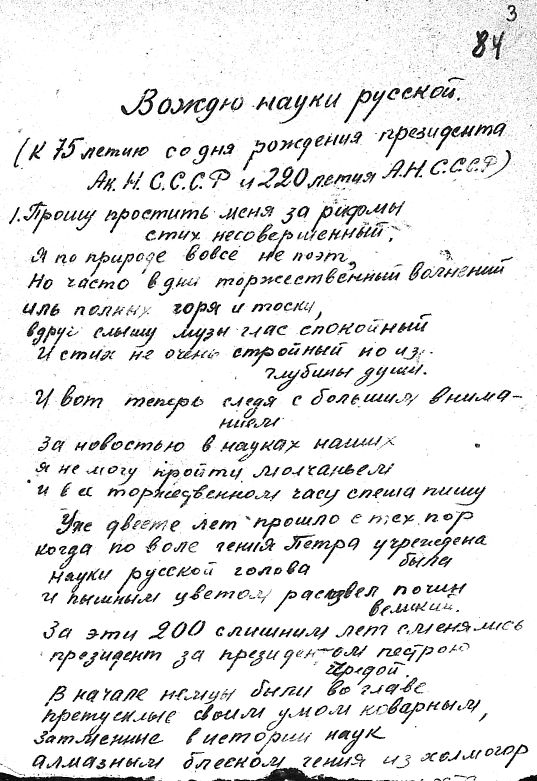 3
84
Вождю науки русской.
(К 75 летию со дня рождения президента
Ак. Н. С.С.С.Р и 220 летия А.Н.С.С.С.Р)
1. Прошу простить меня за рифмы
стих несовершенный,
Я по природе вовсе не поэт,
Но часто в дни торжественный волнений
иль полных горя и тоски,
вдруг слышу музы глас спокойный
И стих не очень стройный но из
глубины души.
И вот теперь следя с большим внима-
нием
за новостью в науках наших
я не могу пройти молчаньем
и в торжественном часу спеша пишу
Уже двести лет прошло с тех пор
когда по воле гения Петра учреждена
была
науки русской голова
и пышным цветом расцвел почин
великий.
За эти 200 слишним лет сменялись
президент за президентом пестрою
чредой.
В начале немцы были во главе
претусклые своим умом коварным,
затменные в истории наук
алмазным блеском гения из холмогор